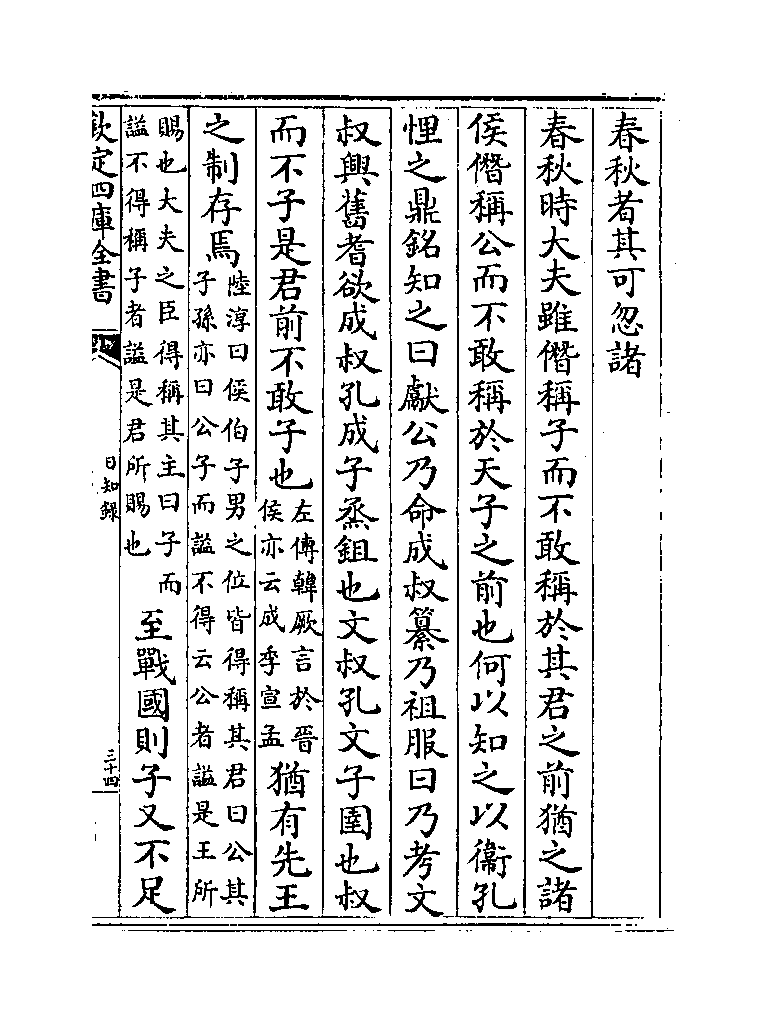 春秋者其可忽諸
春秋時大夫雖僭稱子而不敢稱於其君之前猶之諸
侯僭稱公而不敢稱於天子之前也何以知之以衞孔
悝之鼎銘知之曰獻公乃命成叔纂乃祖服曰乃考文
叔興舊耆欲成叔孔成子烝鉏也文叔孔文子圉也叔
而不子是君前不敢子也左傳韓厥言於晉
侯亦云成季宣孟猶有先王
之制存焉陸淳曰侯伯子男之位皆得稱其君曰公其
子孫亦曰公子而謚不得云公者謚是王所
賜也大夫之臣得稱其主曰子而
謚不得稱子者謚是君所賜也至戰國則子又不足
欽定四庫全書
日知錄
三十四